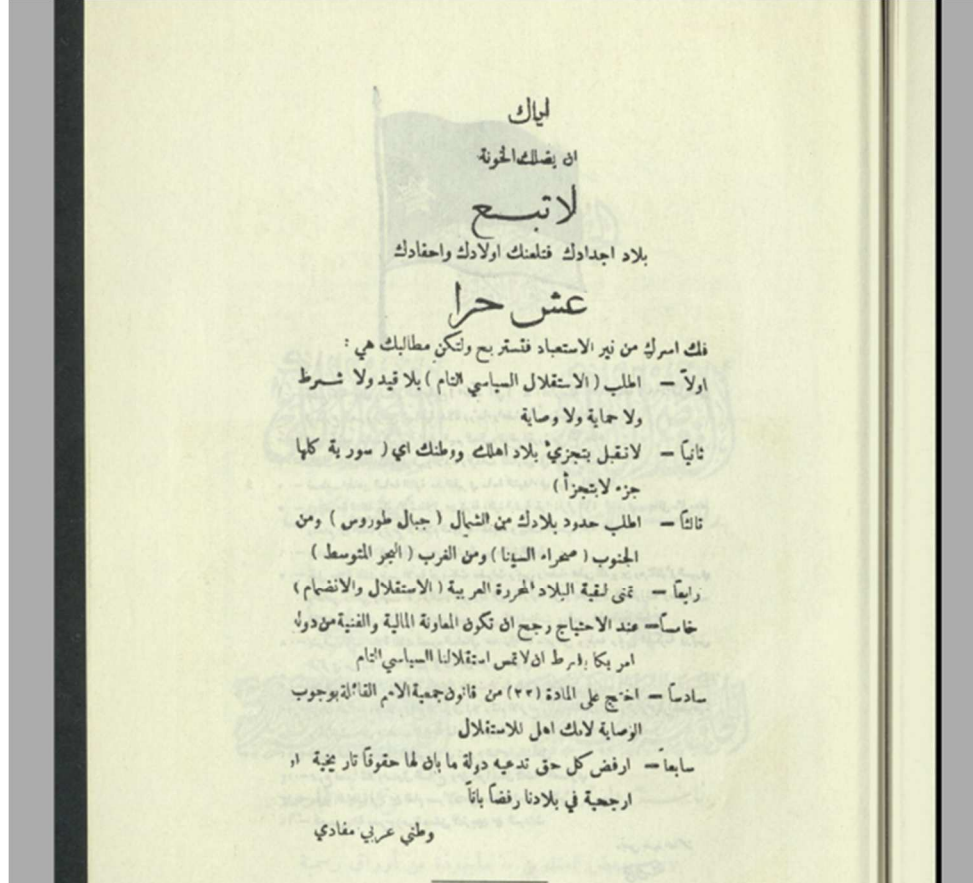 اياك
ان يضلك الخونة
لا تبع
بلاد اجدادك فتلعنك اولادك واحفادك
عش حرا
فك اسرك من نير الاستعباد فتستريح ولتكن مطالبك هي :
اولاً — اطلب ( الاستقلال السياسي التام ) بلا قيد ولا شرط
ولا حماية ولا وصاية
ثانياً — لا تقبل بتجزيء بلاد اهلك ووطنك اي ( سورية كلها
جزء لا يتجزأ )
ثالثاً — اطلب حدود بلادك من الشمال ( جبال طوروس ) ومن
الجنوب ( صحراء السينا ) ومن الغرب ( البحر المتوسط )
رابعاً — تمنى لبقية البلاد المحررة العربية ( الاستقلال والانضمام )
خامساً — عند الاحتياج رجح ان تكون المعاونة المالية والفنية من دولة
امريكا بشرط ان لا تمس استقلالنا السياسي التام
سادساً — احتج على المادة (٢٢) من قانون جمعية الامم القائلة بوجوب
الوصاية لانك اهل للاستقلال
سابعاً — ارفض كل حق تدعيه دولة ما بان لها حقوقاً تاريخية او
ارجحية في بلادنا رفضاً باتاً
وطني عربي مفادي